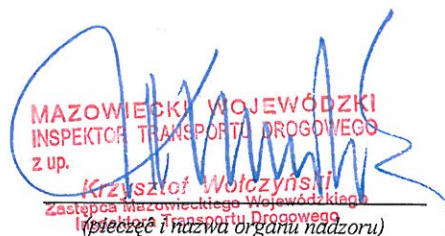 MAZOWIECKI WOJEWÓDZKI
INSPEKTOR TRANSPORTU DROGOWEGO
z up.
Krzysztof Wołczyński
Zastępca Mazowieckiego Wojewódzkiego
Inspektora Transportu Drogowego
(pieczęć i nazwa organu nadzoru)